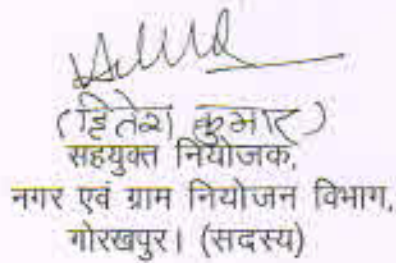 (हितेश कुमार)
सहयुक्त नियोजक,
नगर एवं ग्राम नियोजन विभाग,
गोरखपुर। (सदस्य)